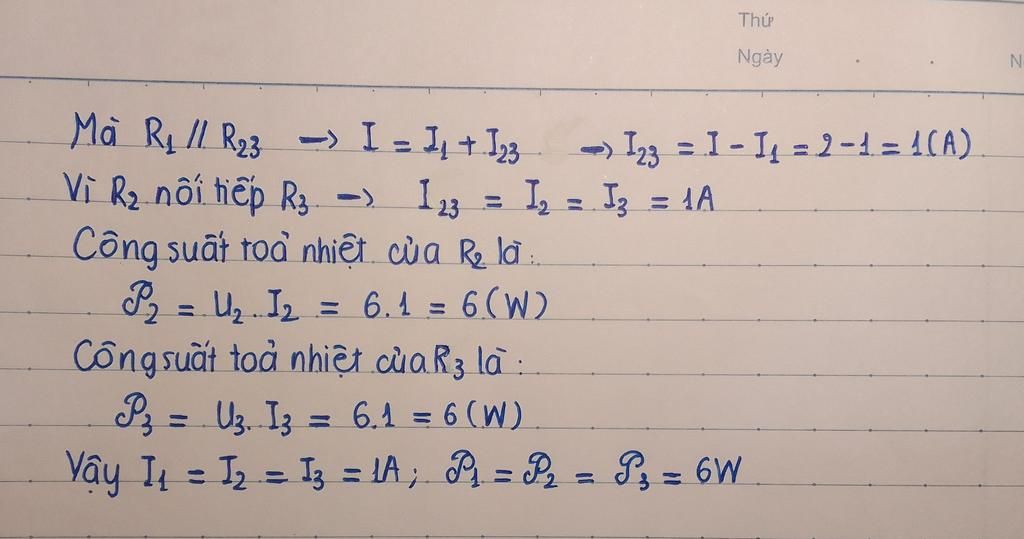 Thứ
Ngày
N
Mà R₁ // R₂₃ → I = I₁ + I₂₃ → I₂₃ = I - I₁ = 2 - 1 = 1(A)
Vì R₂ nối tiếp R₃ → I₂₃ = I₂ = I₃ = 1A
Công suất toả nhiệt của R₂ là:
𝒫₂ = U₂. I₂ = 6.1 = 6(W)
Công suất toả nhiệt của R₃ là:
𝒫₃ = U₃. I₃ = 6.1 = 6(W)
Vậy I₁ = I₂ = I₃ = 1A; 𝒫₁ = 𝒫₂ = 𝒫₃ = 6W